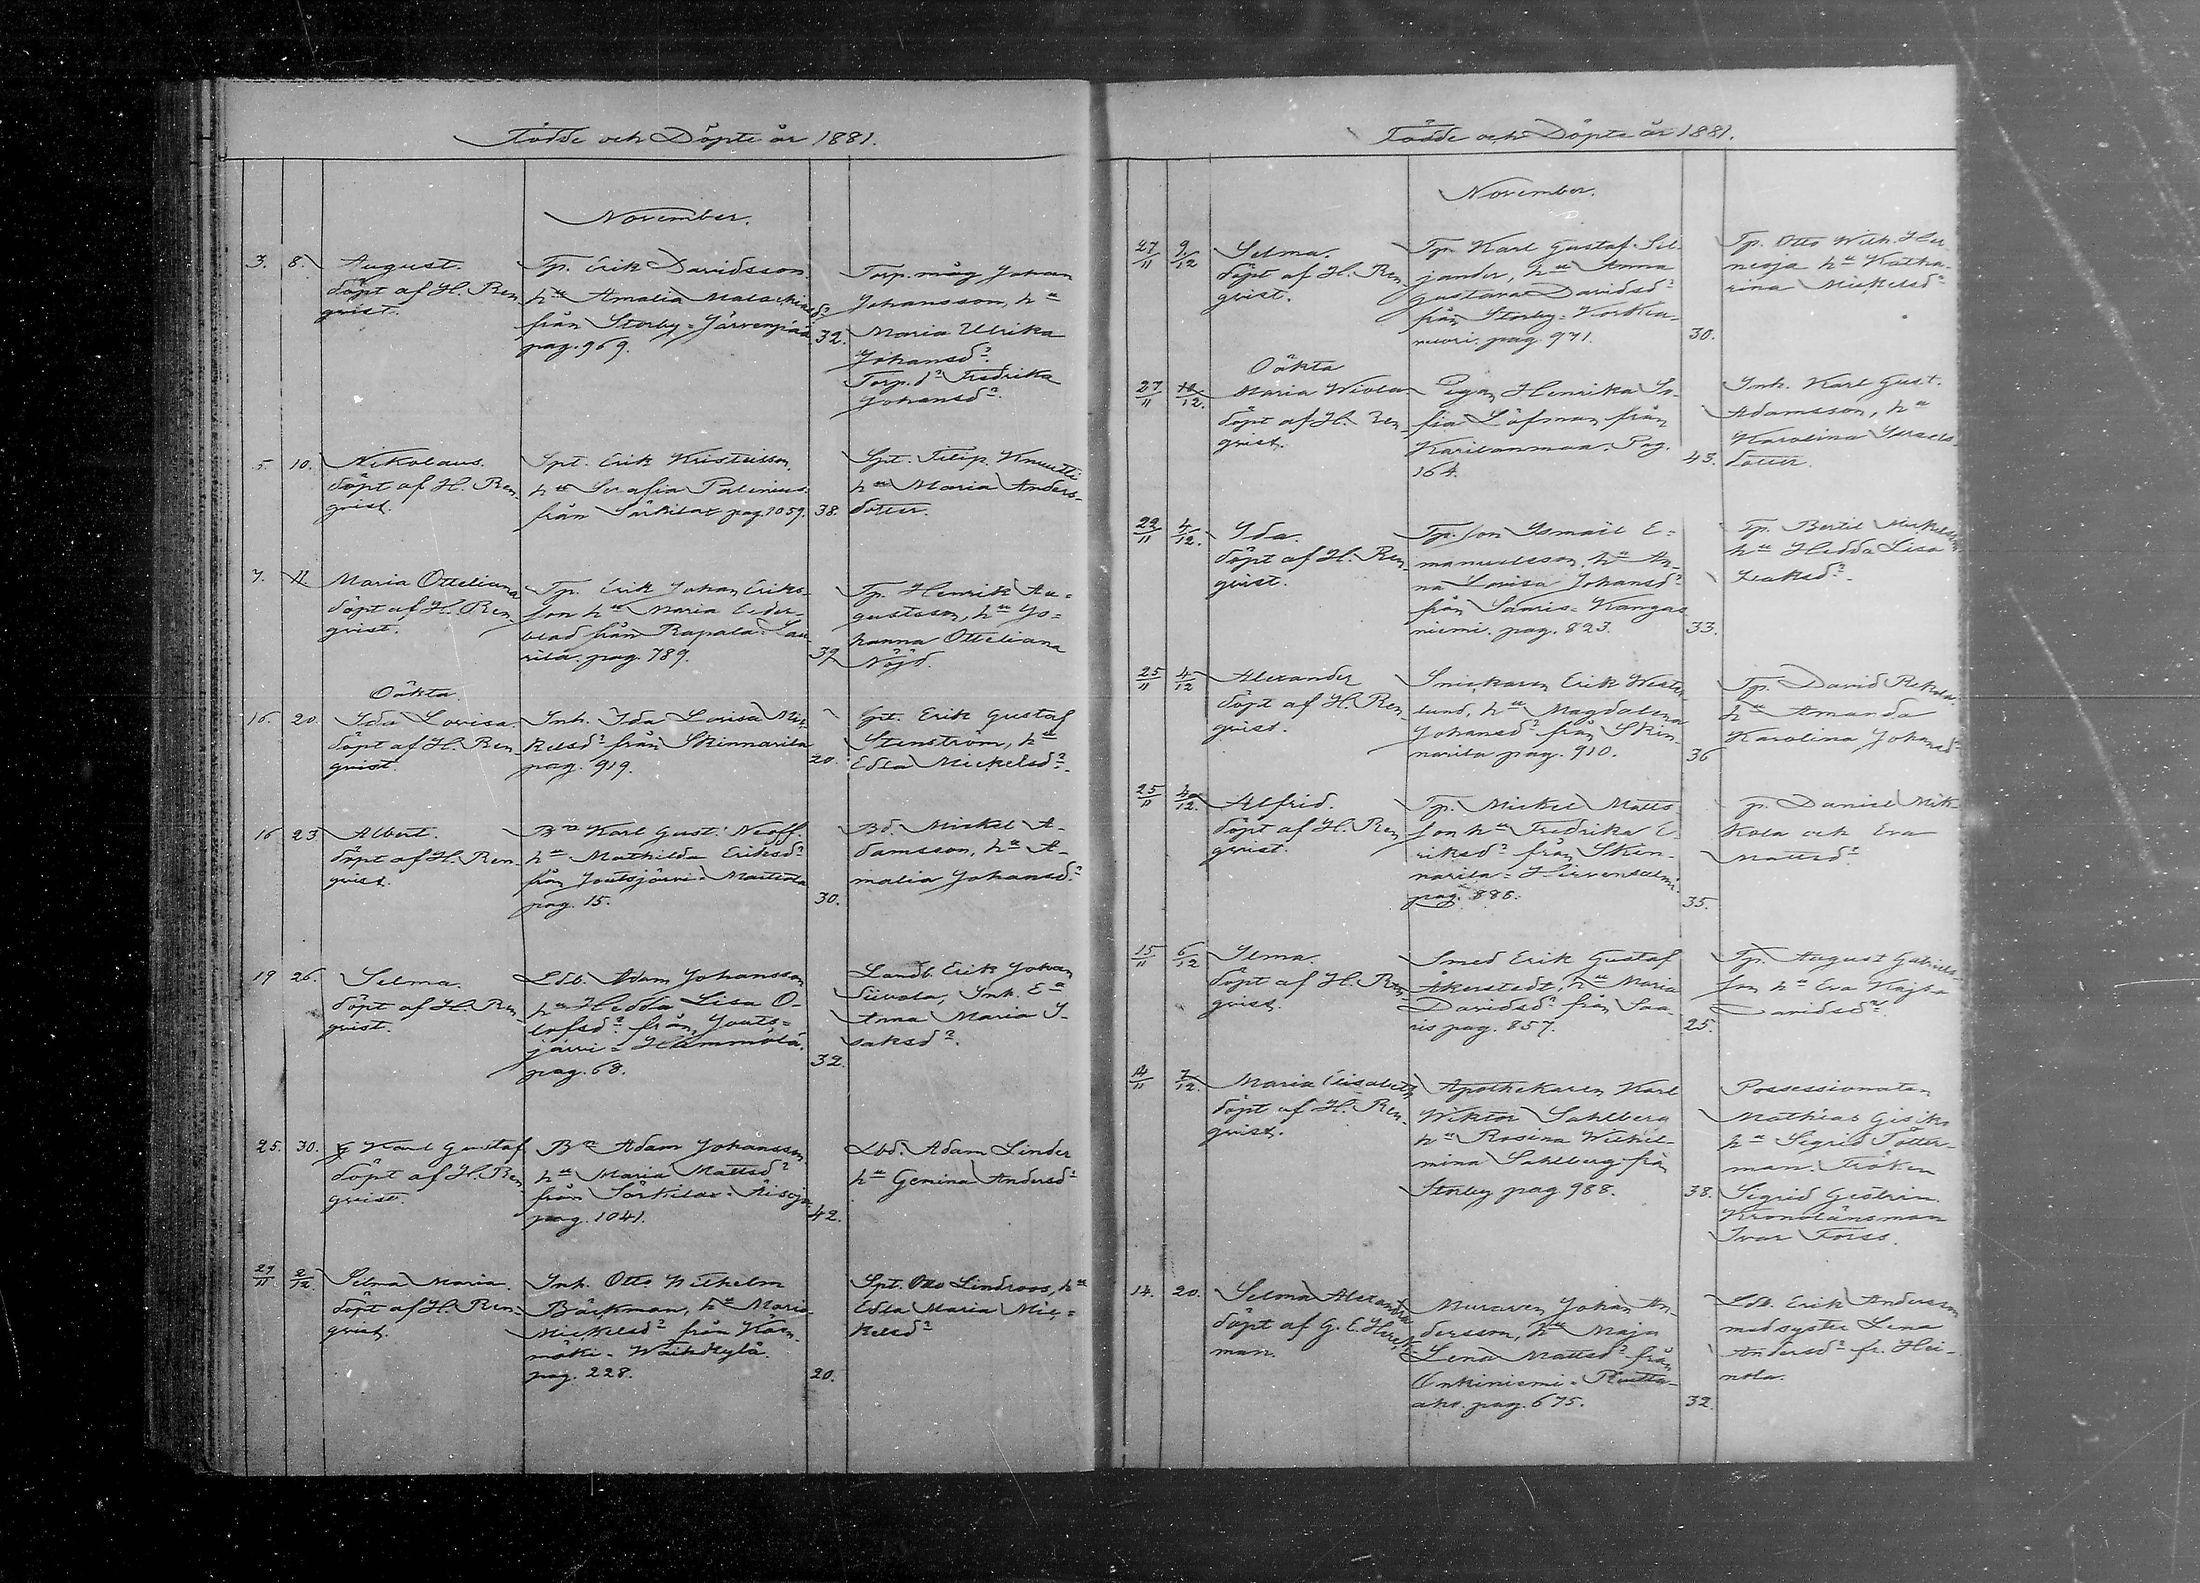 Födde och Döpte år 1881.
November.
3. 8. August.
döpt af H. Ren
qvist.
Tp. Erik Davidsson
hu Amalia
från Storby - Järvenpää
pag. 969.
32.
Torp.måg Johan
Johansson, hu
Maria Ulrika
Johansd:r
Torp.dr Fredrika
Johansd:r
5. 10. Nikolaus.
döpt af H. Ren-
qvist.
Spt. Erik
hu Serafia Palenius
från Särkilax pag. 1059.
38.
Spt. Filip Knuutti
hu Maria Anders-
dotter.
7. 11 Maria Otteliana
döpt af H. Ren
qvist.
Tp. Erik Johan Eriks-
son hu Maria Ceder-
blad från Rapala - Lau
rila. pag. 789.
39
Tp. Henrik Au-
gustsson, hu Jo-
hanna Otteliana
Nöjd.
Oäkta
16. 20. Ida Lovisa.
döpt af H. Ren
qvist.
Inh. Ida Lovisa Mic
kelsd:r från Skinnarila
pag. 919.
20.
Spt. Erik Gustaf
Stenström, hu
Edla Mickelsd:r
16 23. Albert.
döpt af H. Ren
qvist.
Bn Karl Gust. Neoff.
hu Mathilda Eriksd:r
från Joutsjärvi - Marttila
pag. 15.
30.
Bd. Mickel A-
damsson, hu A-
malia Johansd:r
19 26. Selma.
döpt af H. Ren
qvist.
Ldb. Adam Johansson
hu Hedda Lisa O-
lofsd:r från Jouts-
järvi - Hammola.
pag. 68.
32.
Landb. Erik Johan
Siivola, Inh. Ea
Anna Maria I-
saksd:r
25. 30. Karl Gustaf
döpt af H. Ren
qvist.
Bn Adam Johansson
hu Maria Mattsd:r
från Särkilax - Äisoja
pag. 1041.
42.
Lbd. Adam Linder
hu Gemina Andersd:r
29/11 2/12 Selma Maria.
döpt af H. Ren-
qvist.
Inh. Otto Wilhelm
Bäckman, hu Maria
Mickelsd:r från Kos-
mäki - Waihdkylä.
pag. 228.
20.
Spt. Otto Lindroos, hu
Edla Maria Mic-
kelsd:r
Födde och Döpte år 1881.
November.
27/11 9/12 Selma.
döpt af H. Ren
qvist.
Tp. Karl Gustaf Sil
jander, hu Anna
Gustava Davidsd:r
från Storby - Korkia-
vuori. pag. 971.
30.
Tp. Otto Wilh. Hei-
nioja hu Katha-
rina Mickelsd:r
Oäkta
27/11 10/12. Maria Wiola
döpt af H. Ren-
qvist.
Pigan Henrika So-
fia Löfman från
Karilanmaa. Pag.
164.
43.
Inh. Karl Gust.
Adamsson, hu
Karolina Israels
dotter.
22/11 4/12. Ida.
döpt af H. Ren
qvist.
Tp. son Ismael E-
manuelsson, hu An-
na Lovisa Johansd:r
från Saaris - Kangas
niemi. pag. 823.
33.
Tp. Bertil Mickelsson
hu Hedda Lisa
Isaksd:r
25/11 4/12 Alexander
döpt af H. Ren-
qvist.
Snickaren Erik Wester
lund, hu Magdalena
Johansd:r från Skin-
narila pag. 910.
36
Tp. David Rekola
hu Amanda
Karolina Johansd:r
25/11 4/12. Alfrid.
döpt af H. Ren
qvist.
Tp. Mickel Matts
son hu Fredrika E-
riksd:r från Skin-
narila - Hirvensalmi
pag. 886.
35.
Tp. Daniel Mik-
kola och Eva
Mattsd:r
15/11 6/12 Ilma.
döpt af H. Ren-
qvist.
Smed Erik Gustaf
Åkerstedt, hu Maria
Davidsd:r från Saa-
ris pag. 857.
25.
Tp. August Gabriels-
son hu Eva Kajsa
Davidsd:r
14/11 7/12. Maria Elisabeth
döpt af H. Ren-
qvist.
Apothekaren Karl
Wiktor Sahlberg
hu Rosina Wilhel-
mina Sahlberg från
Storby pag 988.
38.
Possessionaten
Mathias Gisiko
hu Sigrid Tötter-
man. Fröken
Sigrid Geitrin.
Kronolänsman
Ivar Forss.
14. 20. Selma Alexandra
döpt af G. E. Horck-
man.
Muraren Johan An
dersson, hu Maja
Lena Mattsd:r från
Onkiniemi - Ruutta-
aho. pag. 675.
32.
Ldb. Erik Andersson
med syster Lena
Andersd:r fr. Hei-
nola.